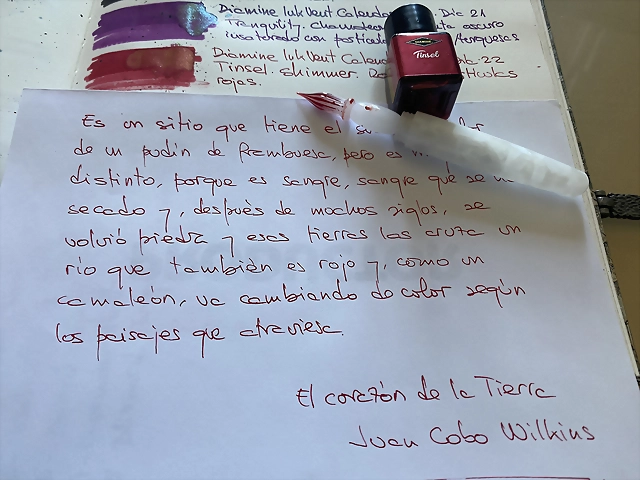 Diamine InkVent Calendar Dic 21
Tranquility. oscuro
turquesas
Diamine InkVent Calendar 22
Tinsel. shimmer.
rojas.
DIAMINE
Tinsel
Es un sitio que tiene el
de un pudin de frambuesa, pero es
distinto, porque es sangre, sangre que se
secado y, después de muchos siglos, se
volvió piedra y esas tierras las cruza un
río que también es rojo y, como un
camaleón, va cambiando de color según
los paisajes que atraviesa.
El corazón de la Tierra
Juan Cobo Wilkins